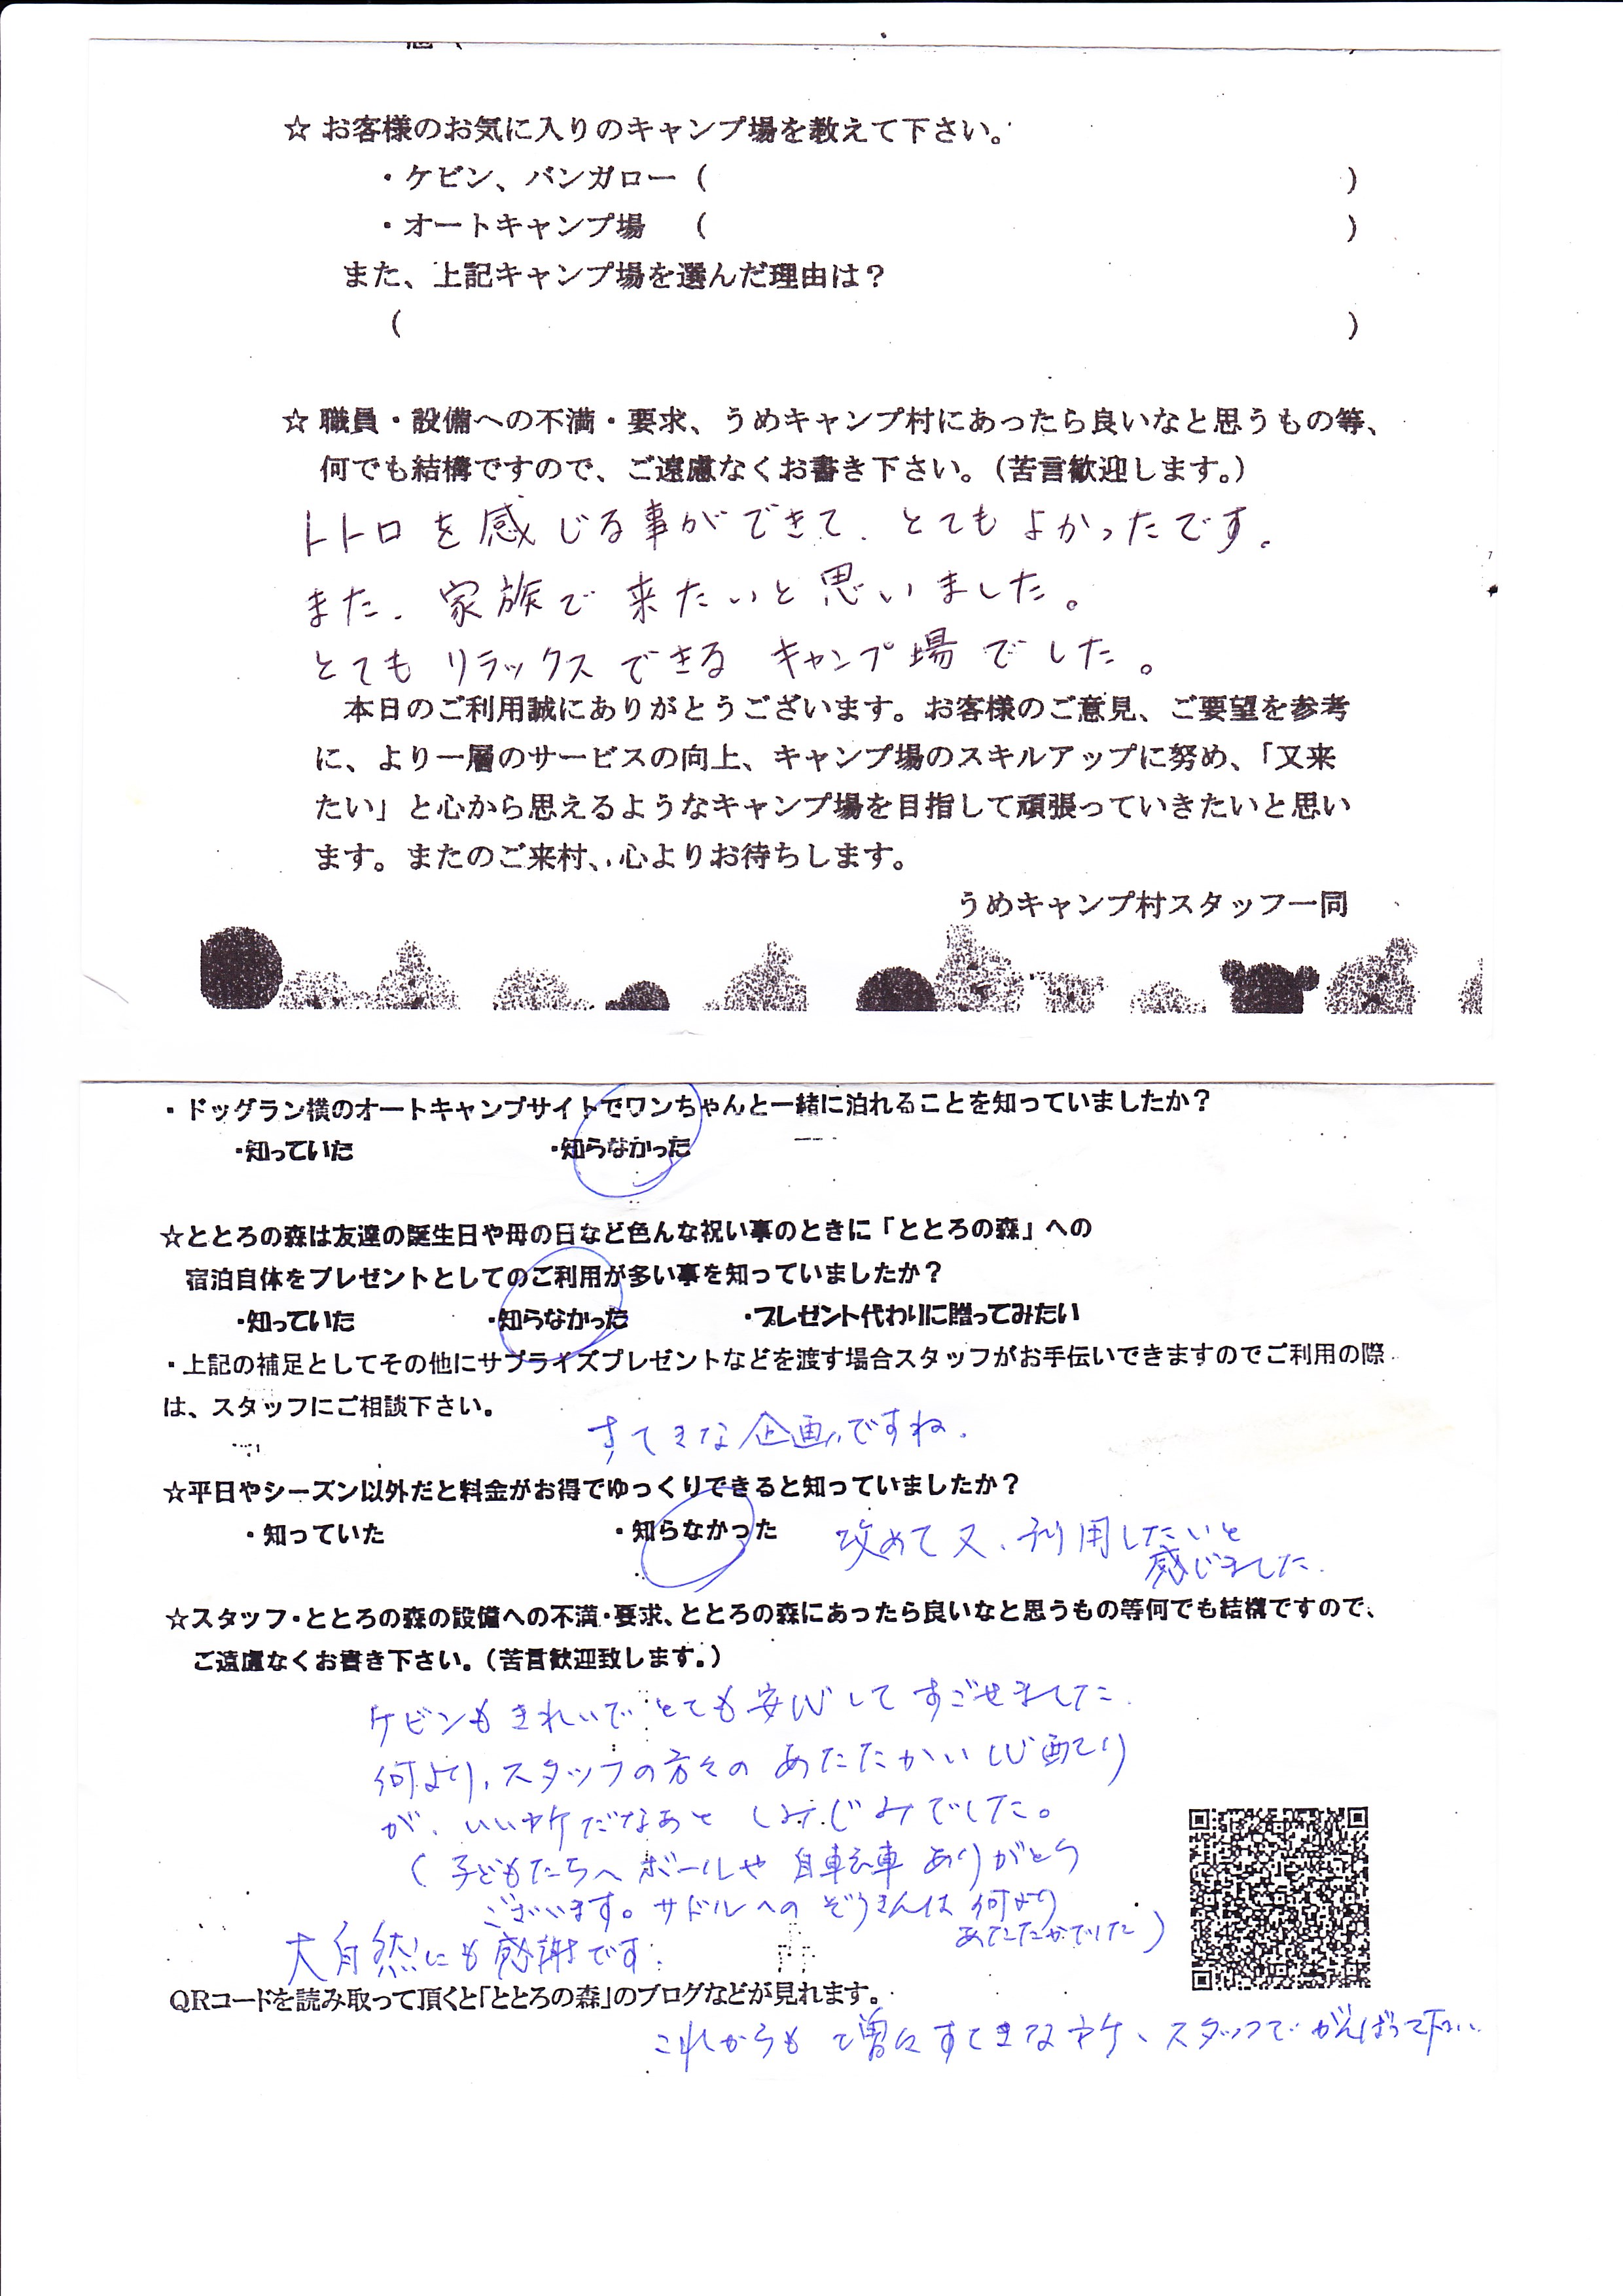 ☆ お客様のお気に入りのキャンプ場を教えて下さい。
・ケビン、バンガロー（　　　　　　）
・オートキャンプ場　（　　　　　　）
また、上記キャンプ場を選んだ理由は？
（　　　　　　）
☆ 職員・設備への不満・要求、うめキャンプ村にあったら良いなと思うもの等、
何でも結構ですので、ご遠慮なくお書き下さい。（苦言歓迎します。）
トトロを感じる事ができて、とてもよかったです。
また、家族で来たいと思いました。
とてもリラックスできるキャンプ場でした。
本日のご利用誠にありがとうございます。お客様のご意見、ご要望を参考
に、より一層のサービスの向上、キャンプ場のスキルアップに努め、「又来
たい」と心から思えるようなキャンプ場を目指して頑張っていきたいと思い
ます。またのご来村、心よりお待ちします。
うめキャンプ村スタッフ一同
・ドッグラン横のオートキャンプサイトでワンちゃんと一緒に泊れることを知っていましたか？
・知っていた　・知らなかった
☆ととろの森は友達の誕生日や母の日など色んな祝い事のときに「ととろの森」への
宿泊自体をプレゼントとしてのご利用が多い事を知っていましたか？
・知っていた　・知らなかった　・プレゼント代わりに贈ってみたい
・上記の補足としてその他にサプライズプレゼントなどを渡す場合スタッフがお手伝いできますのでご利用の際
は、スタッフにご相談下さい。
すてきな企画ですね。
☆平日やシーズン以外だと料金がお得でゆっくりできると知っていましたか？
・知っていた　・知らなかった　攻めて又、利用したいと
感じました。
☆スタッフ・ととろの森の設備への不満・要求、ととろの森にあったら良いなと思うもの等何でも結構ですので、
ご遠慮なくお書き下さい。（苦言歓迎致します。）
ケビンもきれいでとても安心してすごせました。
何より、スタッフの方々のあたたかい心配り
が、いい所だなあとしみじみでした。
（子どもたちへボールや自転車ありがとう
ございます。サドルへのぞうきんは何より
あたたかでした）
大自然にも感謝です。
QRコードを読み取って頂くと「ととろの森」のブログなどが見れます。
これからも増々すてきな所、スタッフでがんばって下さい。